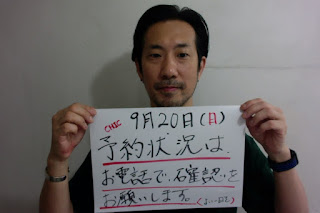 9月20日(日)
予約状況は、
お電話で、確認を
お願いします。